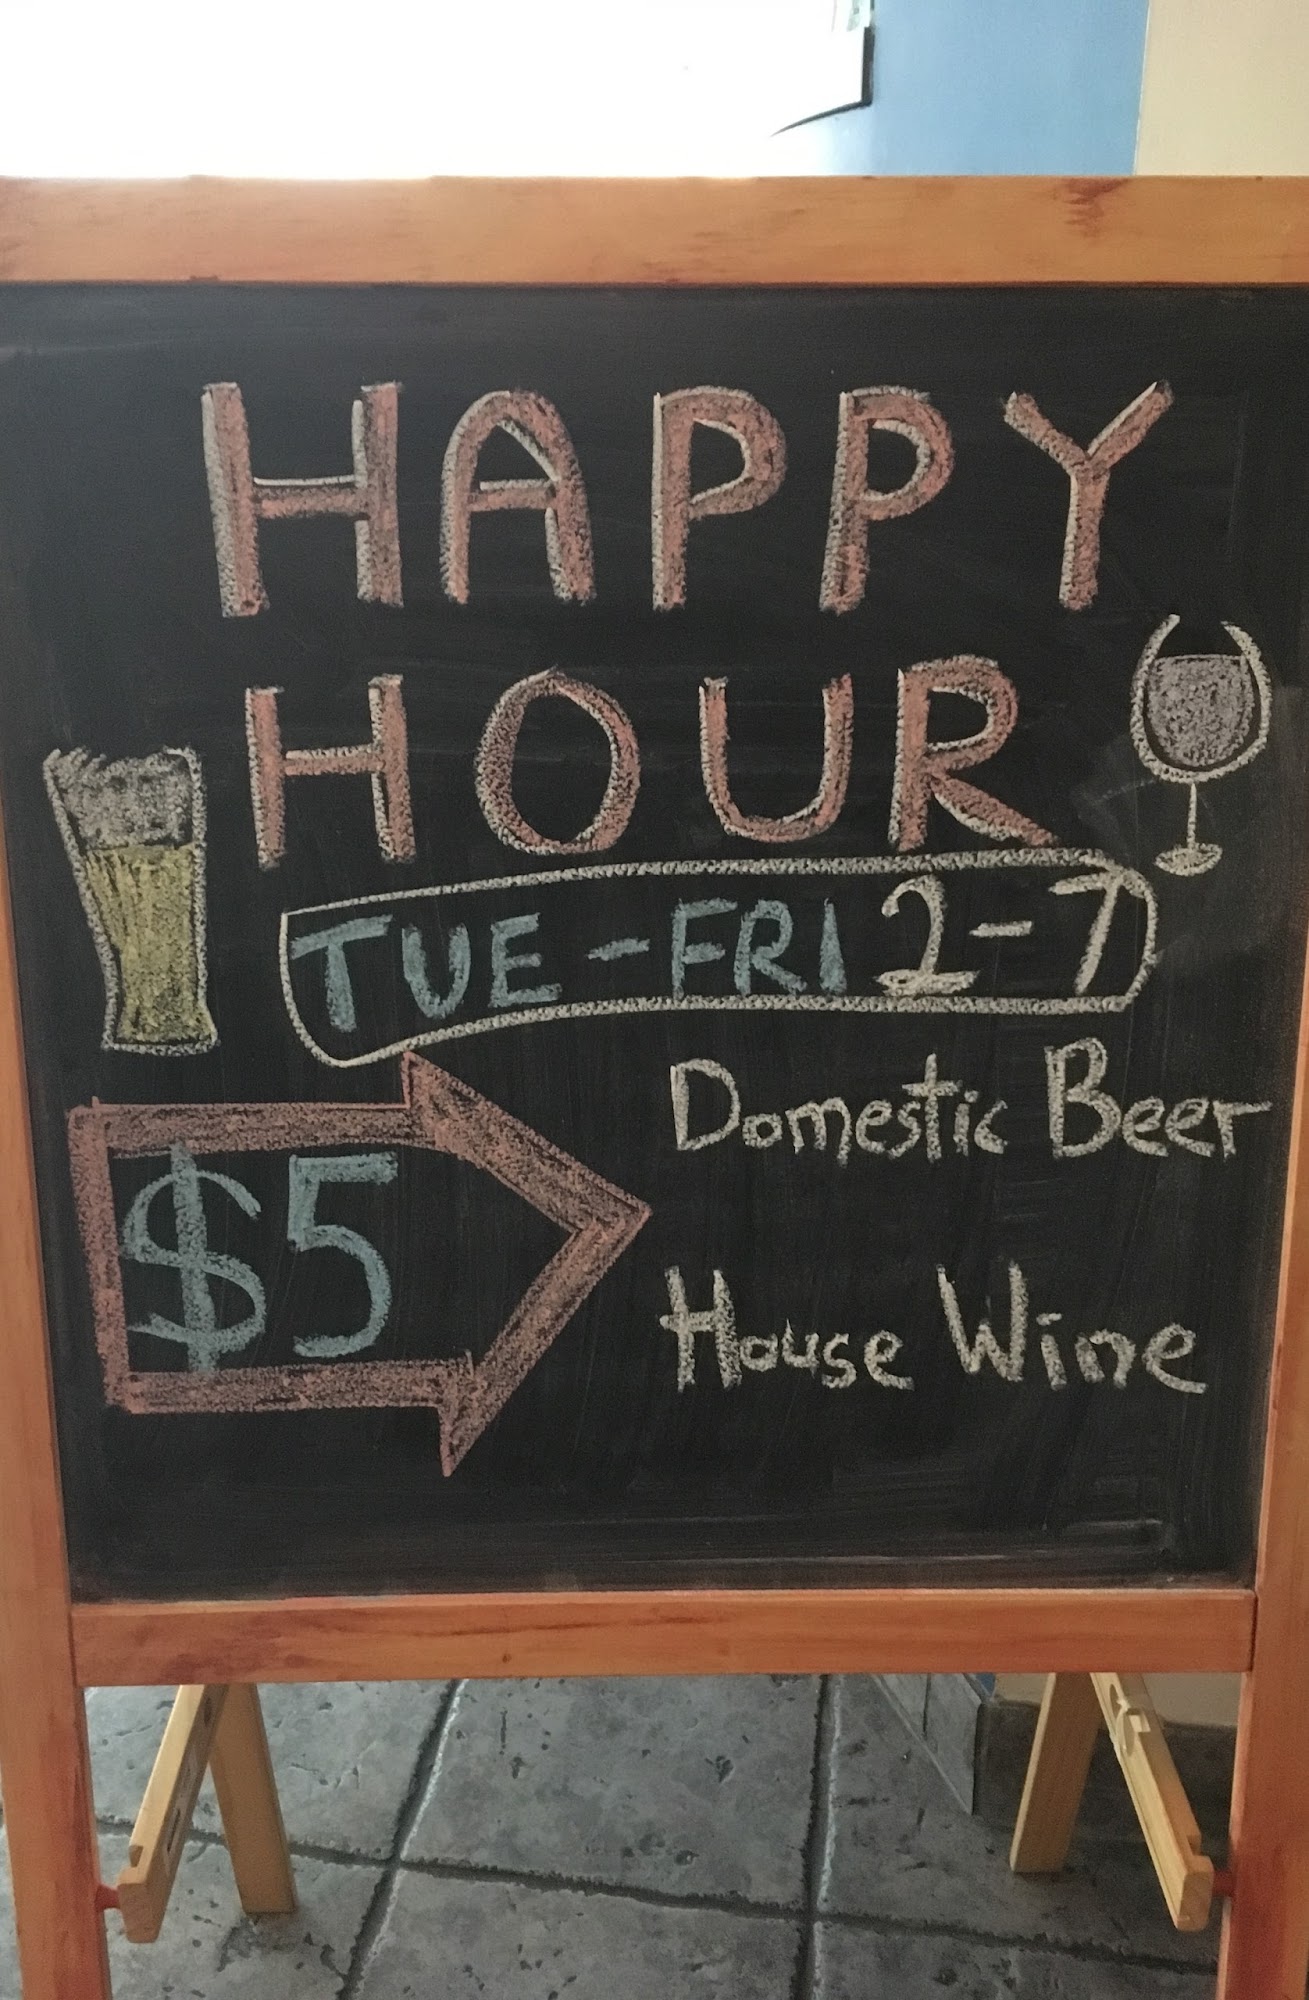 HAPPY
HOUR
TUE-FRI 2-7
Domestic Beer
$5
House Wine